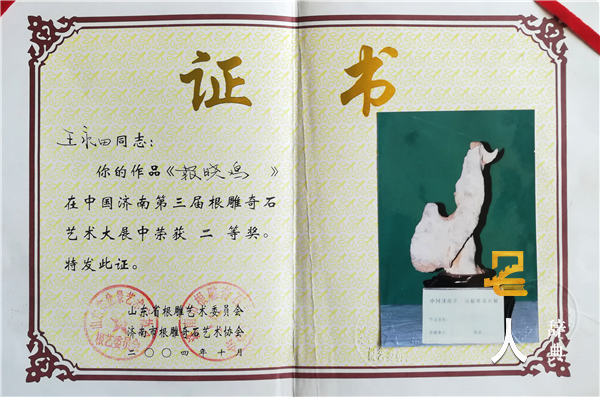 证 书
王永田同志：
你的作品《报晓鸟 》
在中国济南第三届根雕奇石
艺术大展中荣获 二 等奖。
特发此证。
山东省根雕艺术委员会
济南市根雕奇石艺术协会
二〇〇四年十月
根艺委员会
名人
辞典